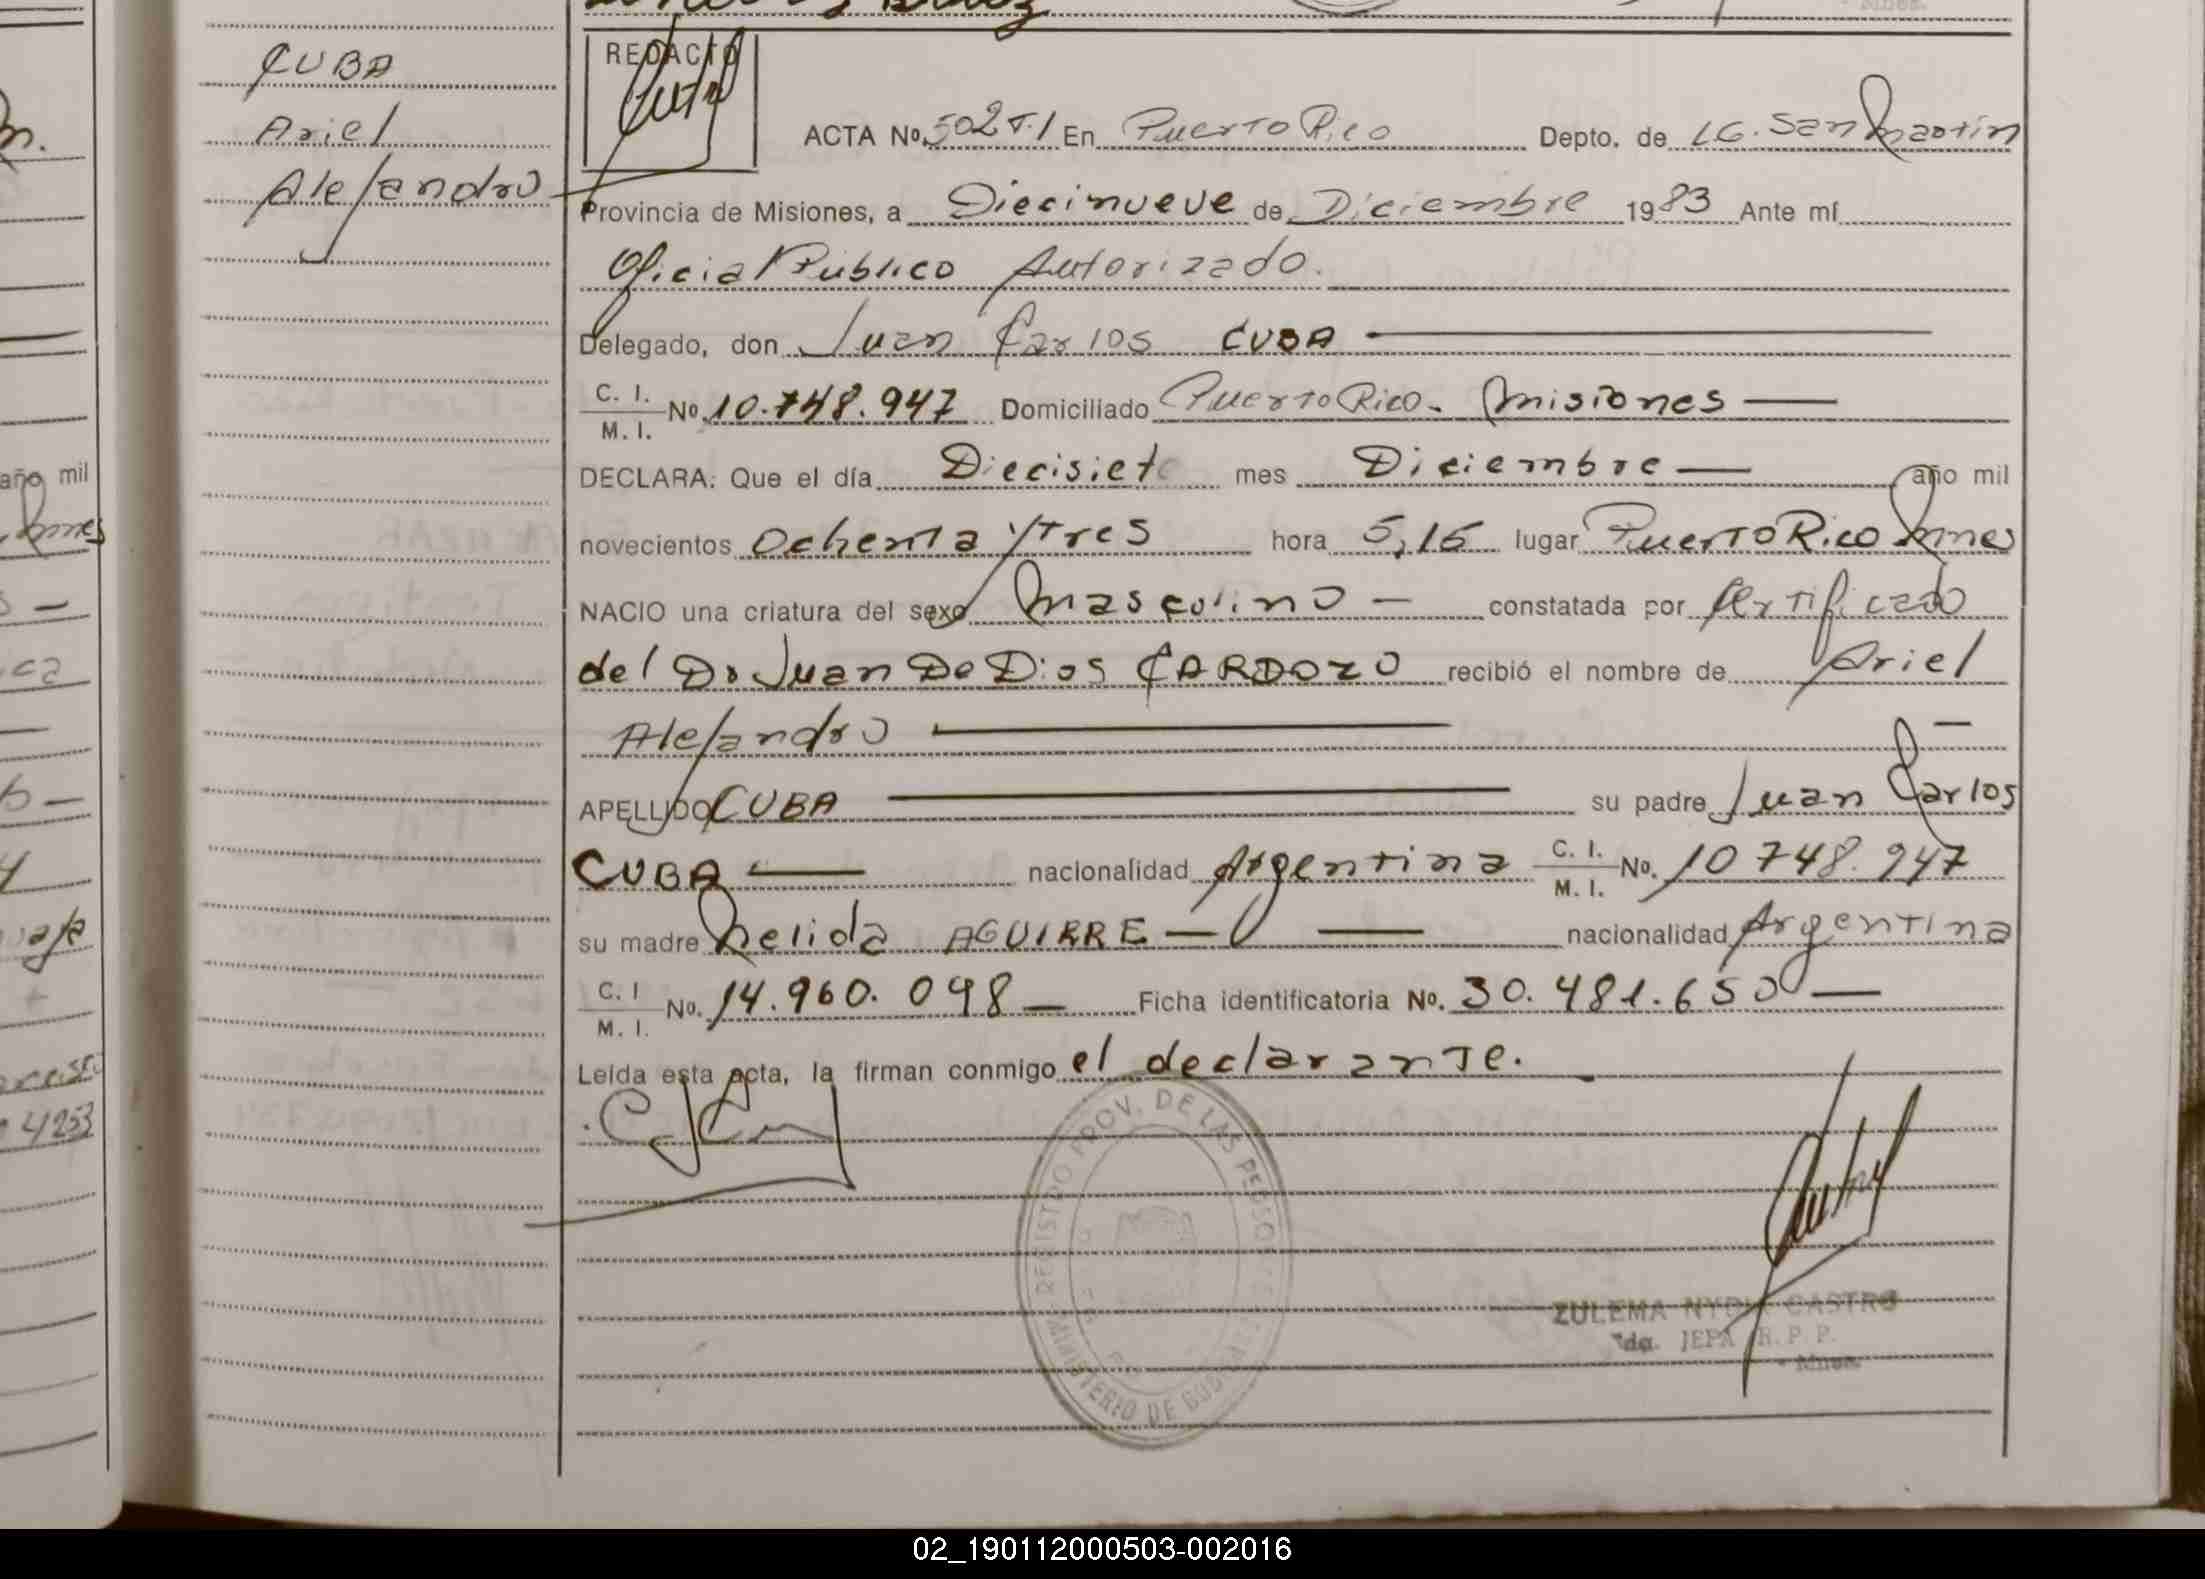 CUBA
Ariel
Alejandro
REDACTO
ACTA Nº 502 T.I En Puerto Rico Depto. de LG. San Martin
Provincia de Misiones, a Diecinueve de Diciembre 1983 Ante mí
Oficial Público Autorizado.
Delegado, don Juan Carlos CUBA
C. I.
M. I. Nº. 10.748.947 Domiciliado Puerto Rico - Misiones
DECLARA: Que el día Diecisiete mes Diciembre año mil
novecientos Ochenta y tres hora 5,15 lugar Puerto Rico Mnes
NACIO una criatura del sexo Masculino constatada por Certificado
del Dr Juan De Dios CARDOZO recibió el nombre de Ariel
Alejandro
APELLIDO CUBA su padre Juan Carlos
CUBA nacionalidad Argentina C. I.
M. I. Nº. 10 748.947
su madre Nelida AGUIRRE nacionalidad Argentina
C. I
M. I. Nº. 14.960.098 Ficha identificatoria Nº. 30.481.650
Leída esta acta, la firman conmigo el declarante.
REGISTRO PROV. DE LAS PERSO
MINISTERIO DE GOB
ZULEMA NYDIA CASTRO
JEFA R. P. P.
Mnes.
año mil
Mnes
4253
02_190112000503-002016